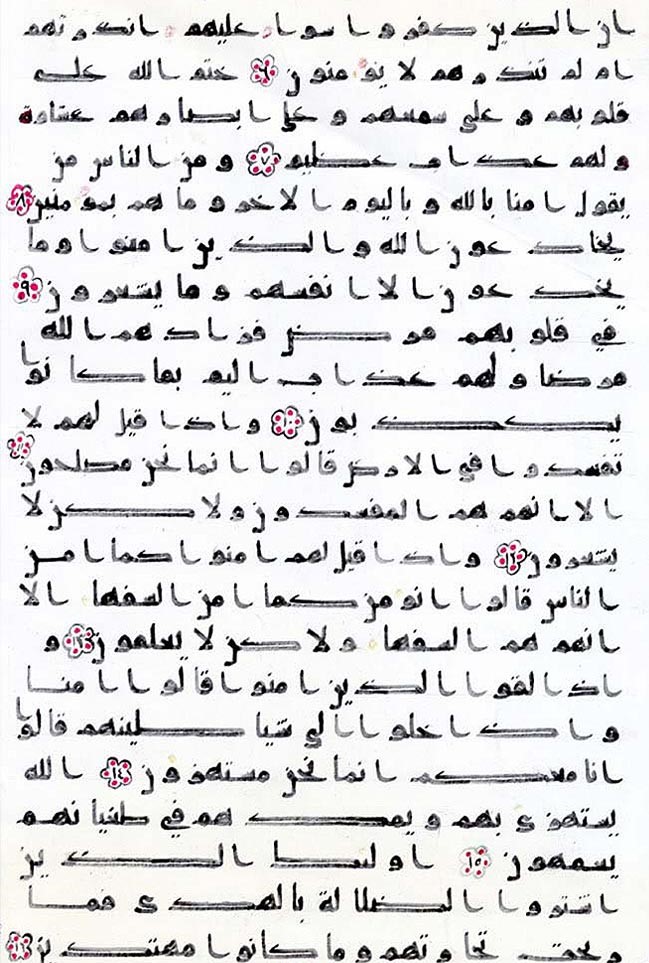 ان الذين كفروا سوا عليهم انذرتهم
ام لم تنذرهم لا يومنون ٦ ختم الله على
قلوبهم وعلى سمعهم وعلى ابصارهم غشاوة
ولهم عذاب عظيم ٧ ومن الناس من
يقول امنا بالله وباليوم الاخر وما هم بمومنين ٨
يخادعون الله والذين امنوا وما
يخدعون الا انفسهم وما يشعرون ٩
في قلوبهم مرض فزادهم الله
مرضا ولهم عذاب اليم بما كانوا
يكذبون ١٠ واذا قيل لهم لا
تفسدوا في الارض قالوا انما نحن مصلحون ١١
الا انهم هم المفسدون ولكن لا
يشعرون ١٢ واذا قيل لهم امنوا كما امن
الناس قالوا انومن كما امن السفها الا
انهم هم السفها ولكن لا يعلمون ١٣ و
اذا لقوا الذين امنوا قالوا امنا
واذا خلوا الى شياطينهم قالوا
انا معكم انما نحن مستهزون ١٤ الله
يستهزى بهم ويمدهم في طغيانهم
يعمهون ١٥ اوليك الذين
اشتروا الضلالة بالهدى فما
ربحت تجارتهم وما كانوا مهتدين ١٦